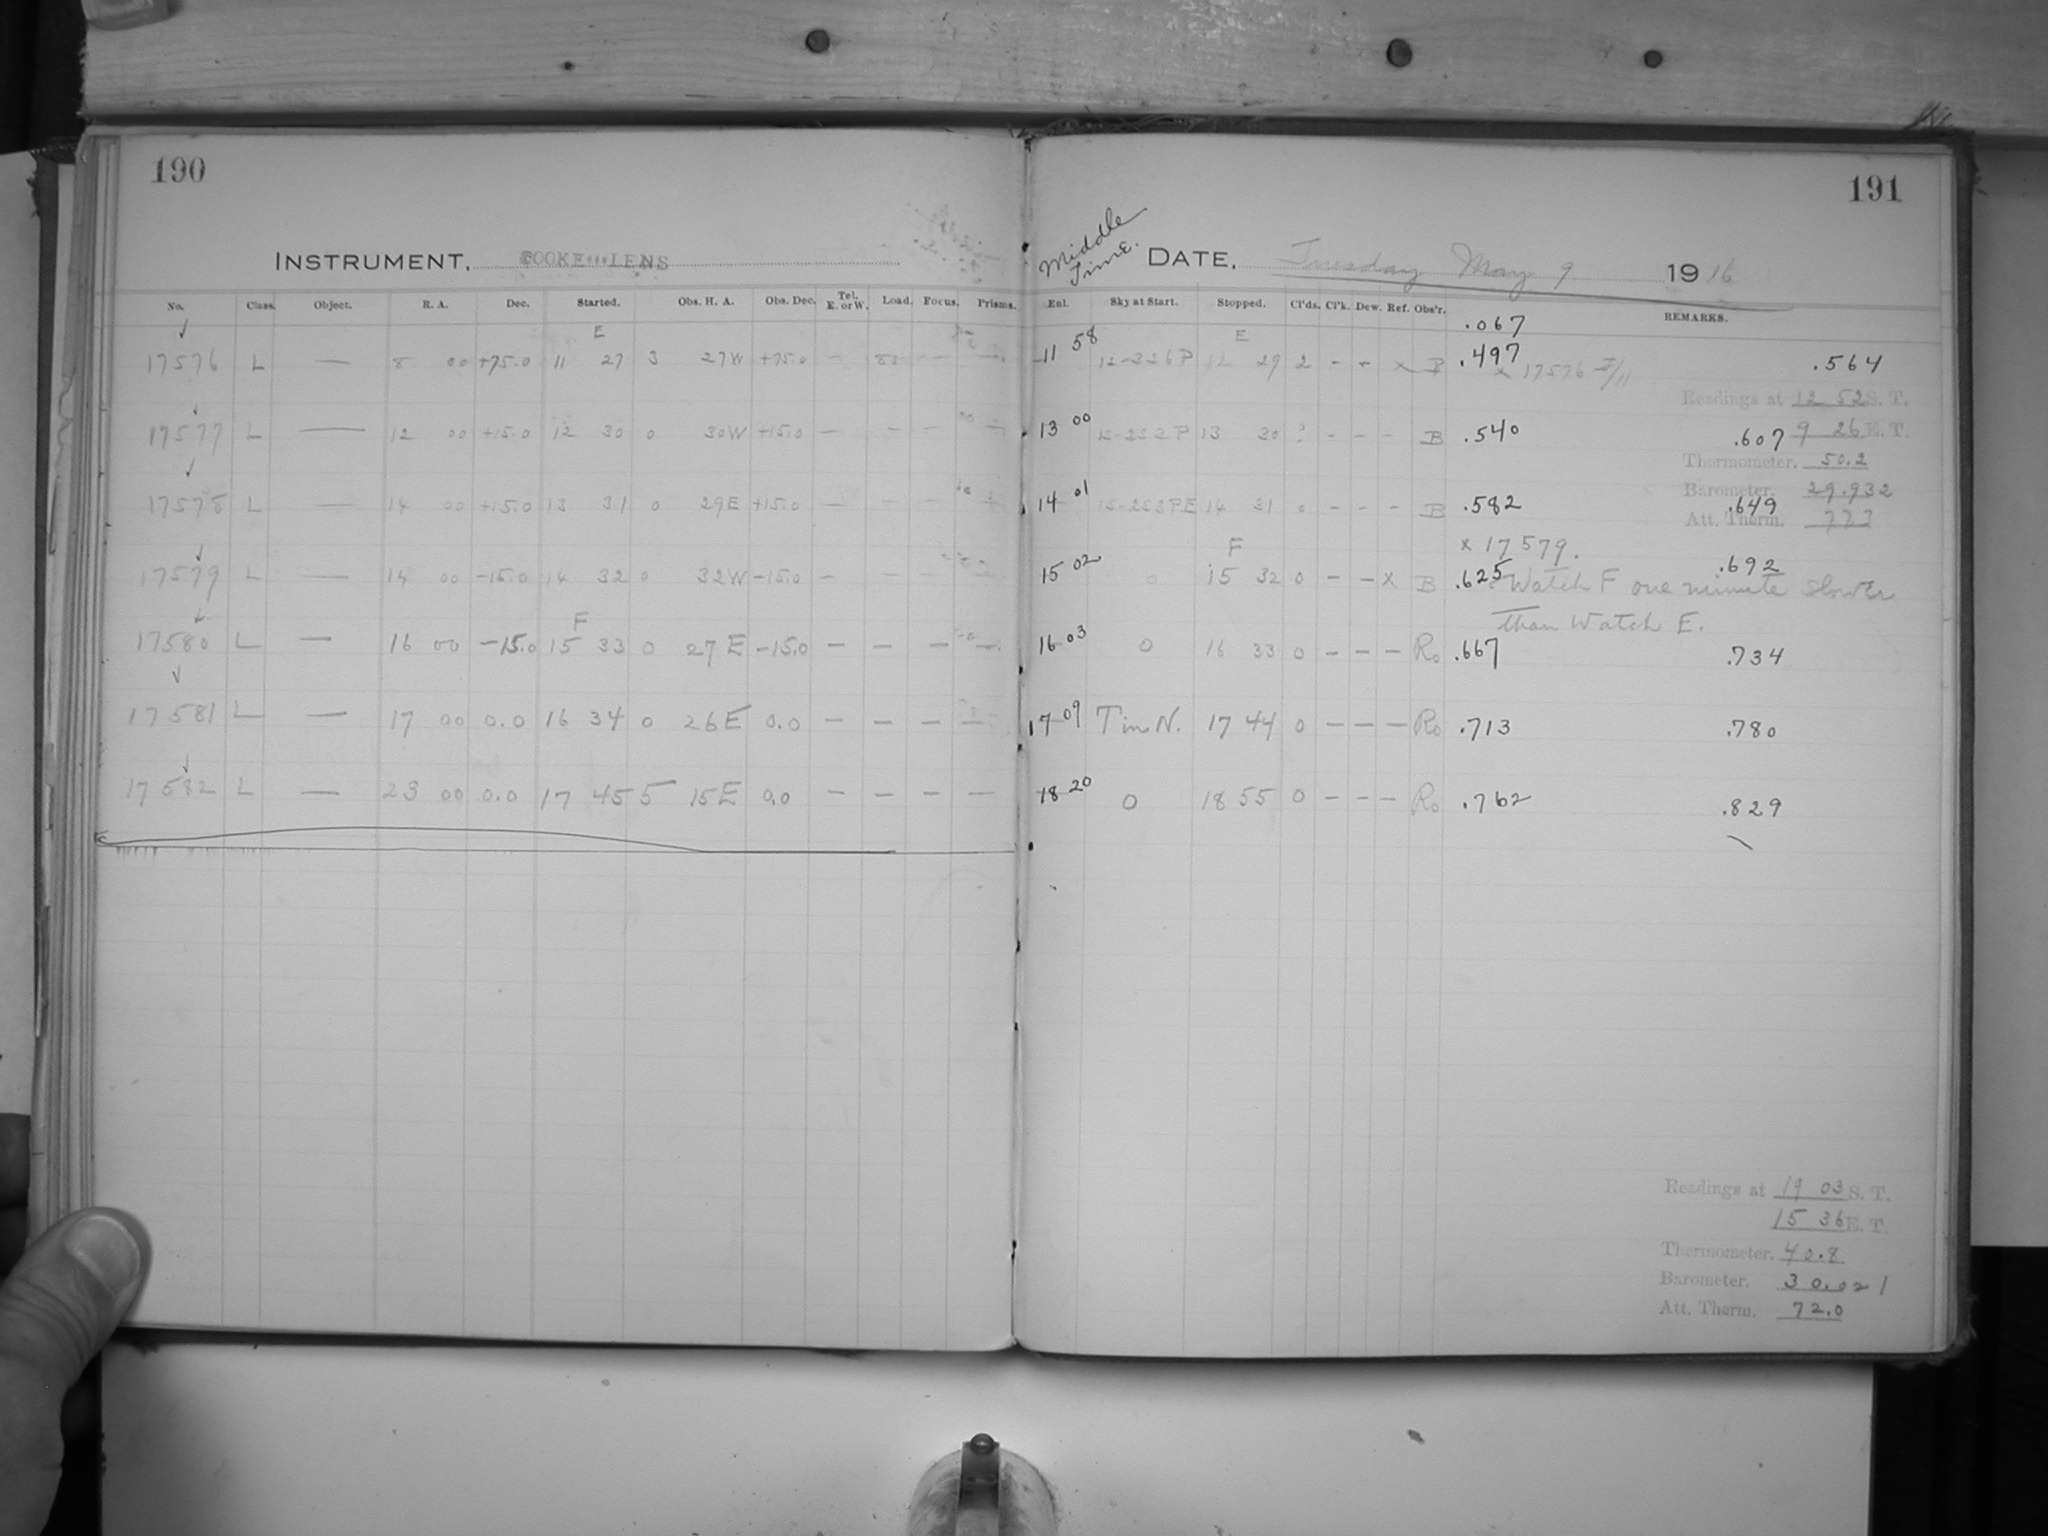 190
INSTRUMENT, COOKE LENS
No. Class. Object. R. A. Dec. Started. Obs. H. A. Obs. Dec. Tel. E. or W. Load. Focus. Prisms.
E
17576 L — 8 00 +75.0 11 27 3 27W +75.0 —
17577 L — 12 00 +15.0 12 30 0 30W +15.0 — — —
17578 L — 14 00 +15.0 13 31 0 29E +15.0 — — —
17579 L — 14 00 -15.0 14 32 0 32W -15.0 — — —
F
17580 L — 16 00 -15.0 15 33 0 27E -15.0 — — — —
17581 L — 17 00 0.0 16 34 0 26E 0.0 — — — —
17582 L — 23 00 0.0 17 45 5 15E 0.0 — — — —
191
Middle Time.
DATE, Tuesday May 9 1916
Enl. Sky at Start. Stopped. Cl'ds. Cl'k. Dew. Ref. Obs'r. REMARKS.
.067
E
11 58 12 29 2 - - x B .497 x 17576 .564
Readings at 12 52 S. T.
13 00 13 30 - - - B .540 .607 9 26 E. T.
Thermometer. 50.2
Barometer. 29.932
14 01 14 31 0 - - - B .582 .649
Att. Therm.
F x 17579.
15 02 0 15 32 0 - - x B .625 .692
Watch F one minute slower
than Watch E.
16 03 0 16 33 0 - - - Ro .667 .734
17 09 T in N. 17 44 0 - - - Ro .713 .780
18 20 0 18 55 0 - - - Ro .762 .829
Readings at 19 03 S. T.
15 36 E. T.
Thermometer. 40.8
Barometer. 30.021
Att. Therm. 72.0